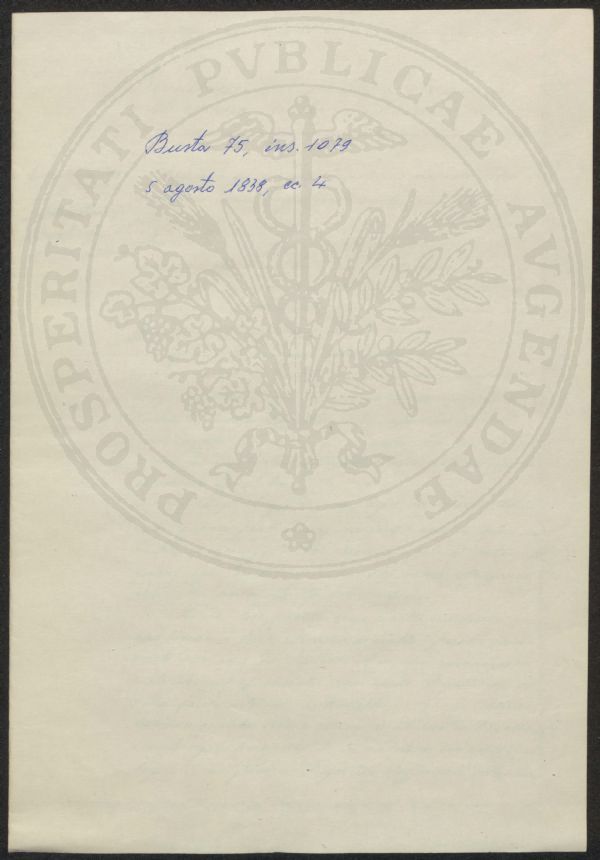 Busta 75, ins. 1079
5 agosto 1838, cc. 4
PROSPERITATI PVBLICAE AVGENDAE